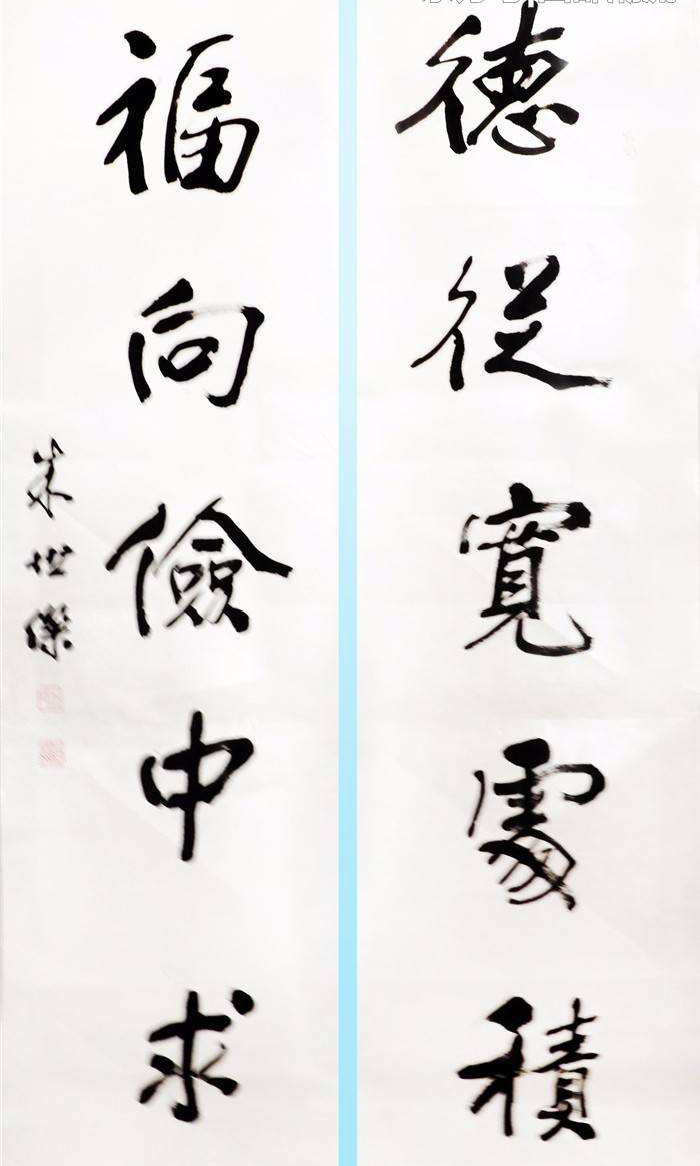 德從寬處積
福向儉中求
朱世傑